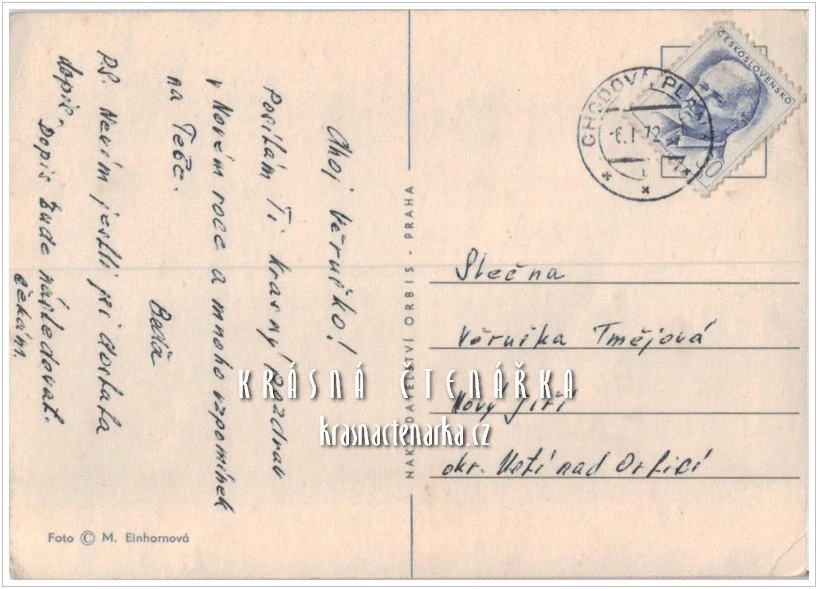 Ahoj Věruško!
Posílám Ti krásný pozdrav
v Novém roce a mnoho vzpomínek
na Tebe.
P.S. Nevím jestli jsi dostala
dopis. Dopis bude následovat.
čekám.
Foto © M. Einhornová
NAKLADATELSTVÍ ORBIS - PRAHA
ČESKOSLOVENSKO
CHODOVÁ PLANÁ
-6.I.72
Slečna
Věruška
Nový Jiří
okr. Ústí nad Orlicí
KRÁSNÁ ČTENÁŘKA
krasnactenarka.cz